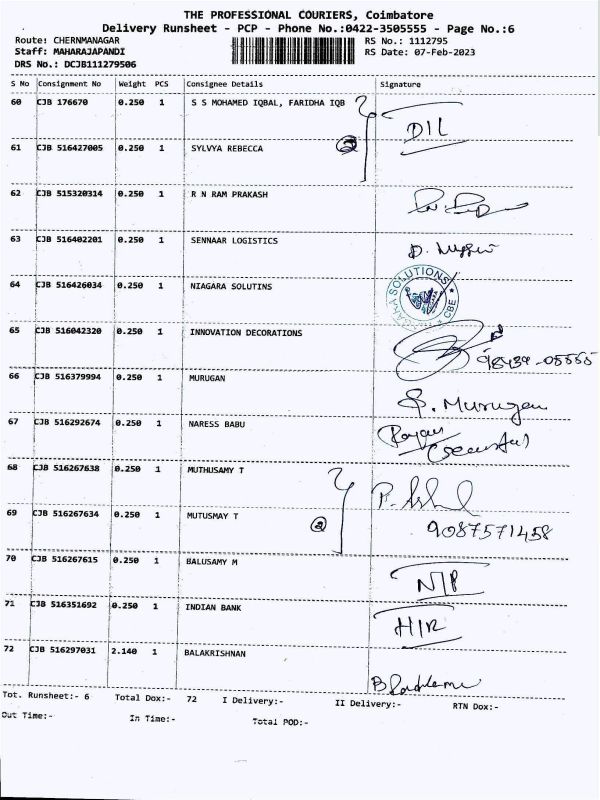 THE PROFESSIONAL COURIERS, Coimbatore
Delivery Runsheet - PCP - Phone No.:0422-3505555 - Page No.:6
Route: CHERNMANAGAR RS No.: 1112795
Staff: MAHARAJAPANDI RS Date: 07-Feb-2023
DRS No.: DCJB111279506
S No Consignment No Weight PCS Consignee Details Signature
60 CJB 176670 0.250 1 S S MOHAMED IQBAL, FARIDHA IQB
DIL
61 CJB 516427005 0.250 1 SYLVYA REBECCA 2
62 CJB 515320314 0.250 1 R N RAM PRAKASH
63 CJB 516402201 0.250 1 SENNAAR LOGISTICS
64 CJB 516426034 0.250 1 NIAGARA SOLUTINS SOLUTIONS CBE
65 CJB 516042320 0.250 1 INNOVATION DECORATIONS
98439-05555
66 CJB 516379994 0.250 1 MURUGAN
P. Murugan
67 CJB 516292674 0.250 1 NARESS BABU
68 CJB 516267638 0.250 1 MUTHUSAMY T
69 CJB 516267634 0.250 1 MUTUSMAY T 2 9087571458
70 CJB 516267615 0.250 1 BALUSAMY M
N/P
71 CJB 516351692 0.250 1 INDIAN BANK
H/R
72 CJB 516297031 2.140 1 BALAKRISHNAN
Tot. Runsheet:- 6 Total Dox:- 72 I Delivery:- II Delivery:- RTN Dox:-
Out Time:- In Time:- Total POD:-